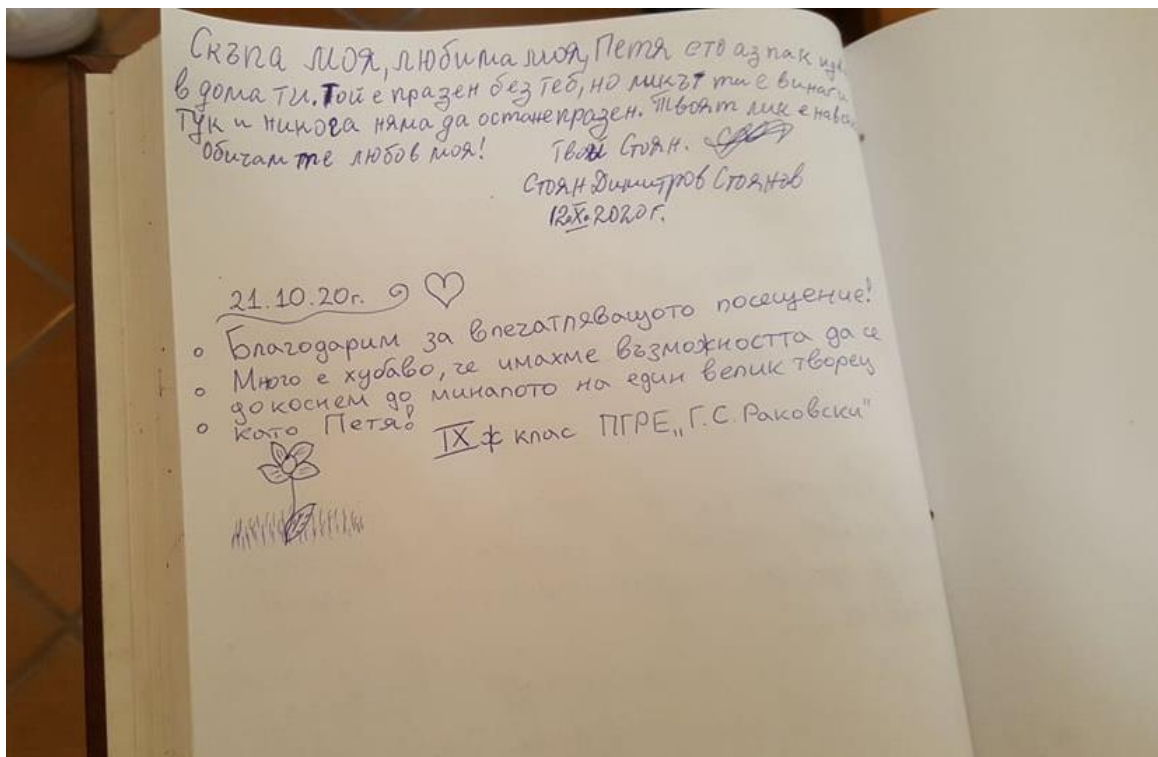 Скъпа моя, любима моя, Петя ето аз пак
в дома ти. Той е празен без теб, но ликът ти е винаги
тук и никога няма да остане празен. Твоят лик е
Обичам те любов моя! Твой Стоян.
Стоян Димитров Стоянов
12.X.2020г.
21.10.20г.
Благодарим за впечатляващото посещение!
Много е хубаво, че имахме възможността да се
докоснем до миналото на един велик творец
като Петя!
IX ж клас ПГРЕ „Г.С. Раковски"